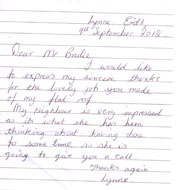 Lynne
9th September 2012
Dear Mr
I would like
to express my sincere thanks
for the lovely job you made
of my flat roof
My neighbour is very impressed
as its what she has been
thinking about having done
for some time, so she is
going to give you a call
Thanks again
Lynne